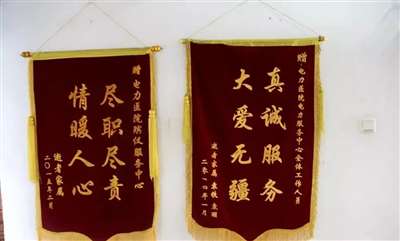 赠电力医院殡仪服务中心
尽职尽责
情暖人心
逝者家属
二〇一五年二月
赠:电力医院电力服务中心全体工作人员
真诚服务
大爱无疆
逝者家属
二零一四年一月